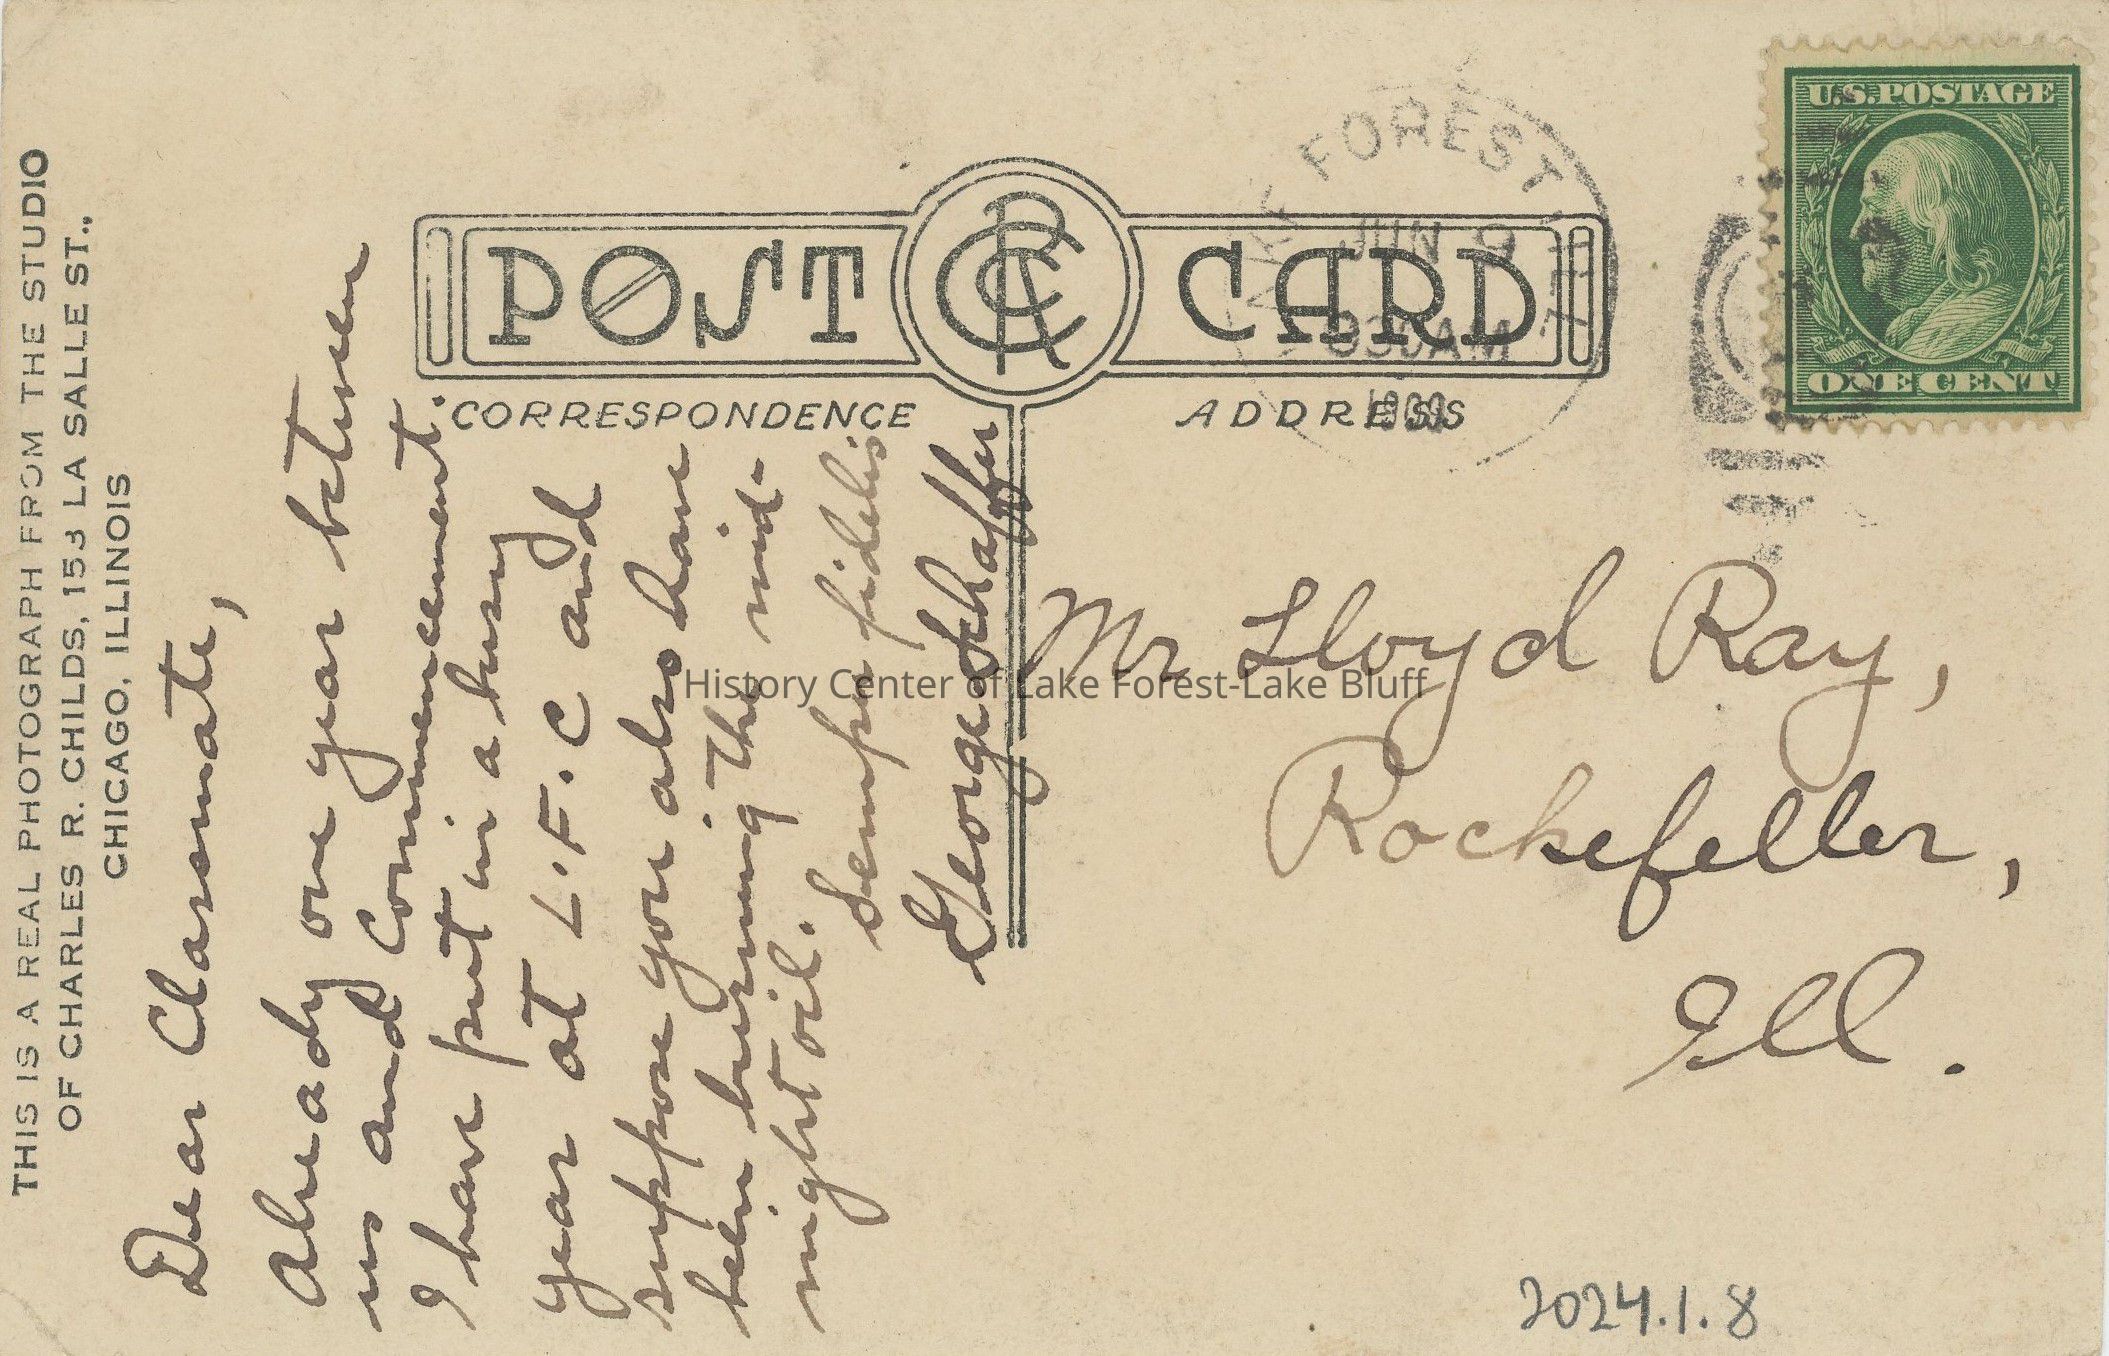 THIS IS A REAL PHOTOGRAPH FROM THE STUDIO
OF CHARLES R. CHILDS, 153 LA SALLE ST.,
CHICAGO, ILLINOIS
POST CARD
CORRESPONDENCE
ADDRESS
Dear Classmate,
Already one year between
us and Commencement.
I have put in a busy
year at L.F.C and
suppose you also have
been burning the mid-
night oil.
Sempe fidelis
George Schaffer
Mr Lloyd Ray,
Rockefeller,
Ill.
LAKE FOREST ILL
JUN 9
830AM
1909
U.S. POSTAGE
ONE CENT
History Center of Lake Forest-Lake Bluff
2024.1.8